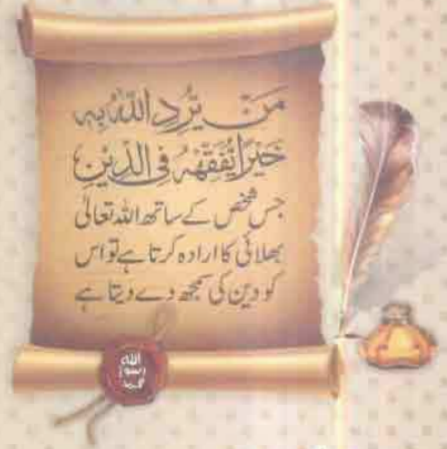 مَنْ يُّرِدِ اللّٰهُ بِهٖ
خَيْرًا يُّفَقِّهْهُ فِي الدِّيْنِ
جس شخص کے ساتھ اللہ تعالیٰ
بھلائی کا ارادہ کرتا ہے تو اس
کو دین کی سمجھ دے دیتا ہے
الله
رسول
محمد